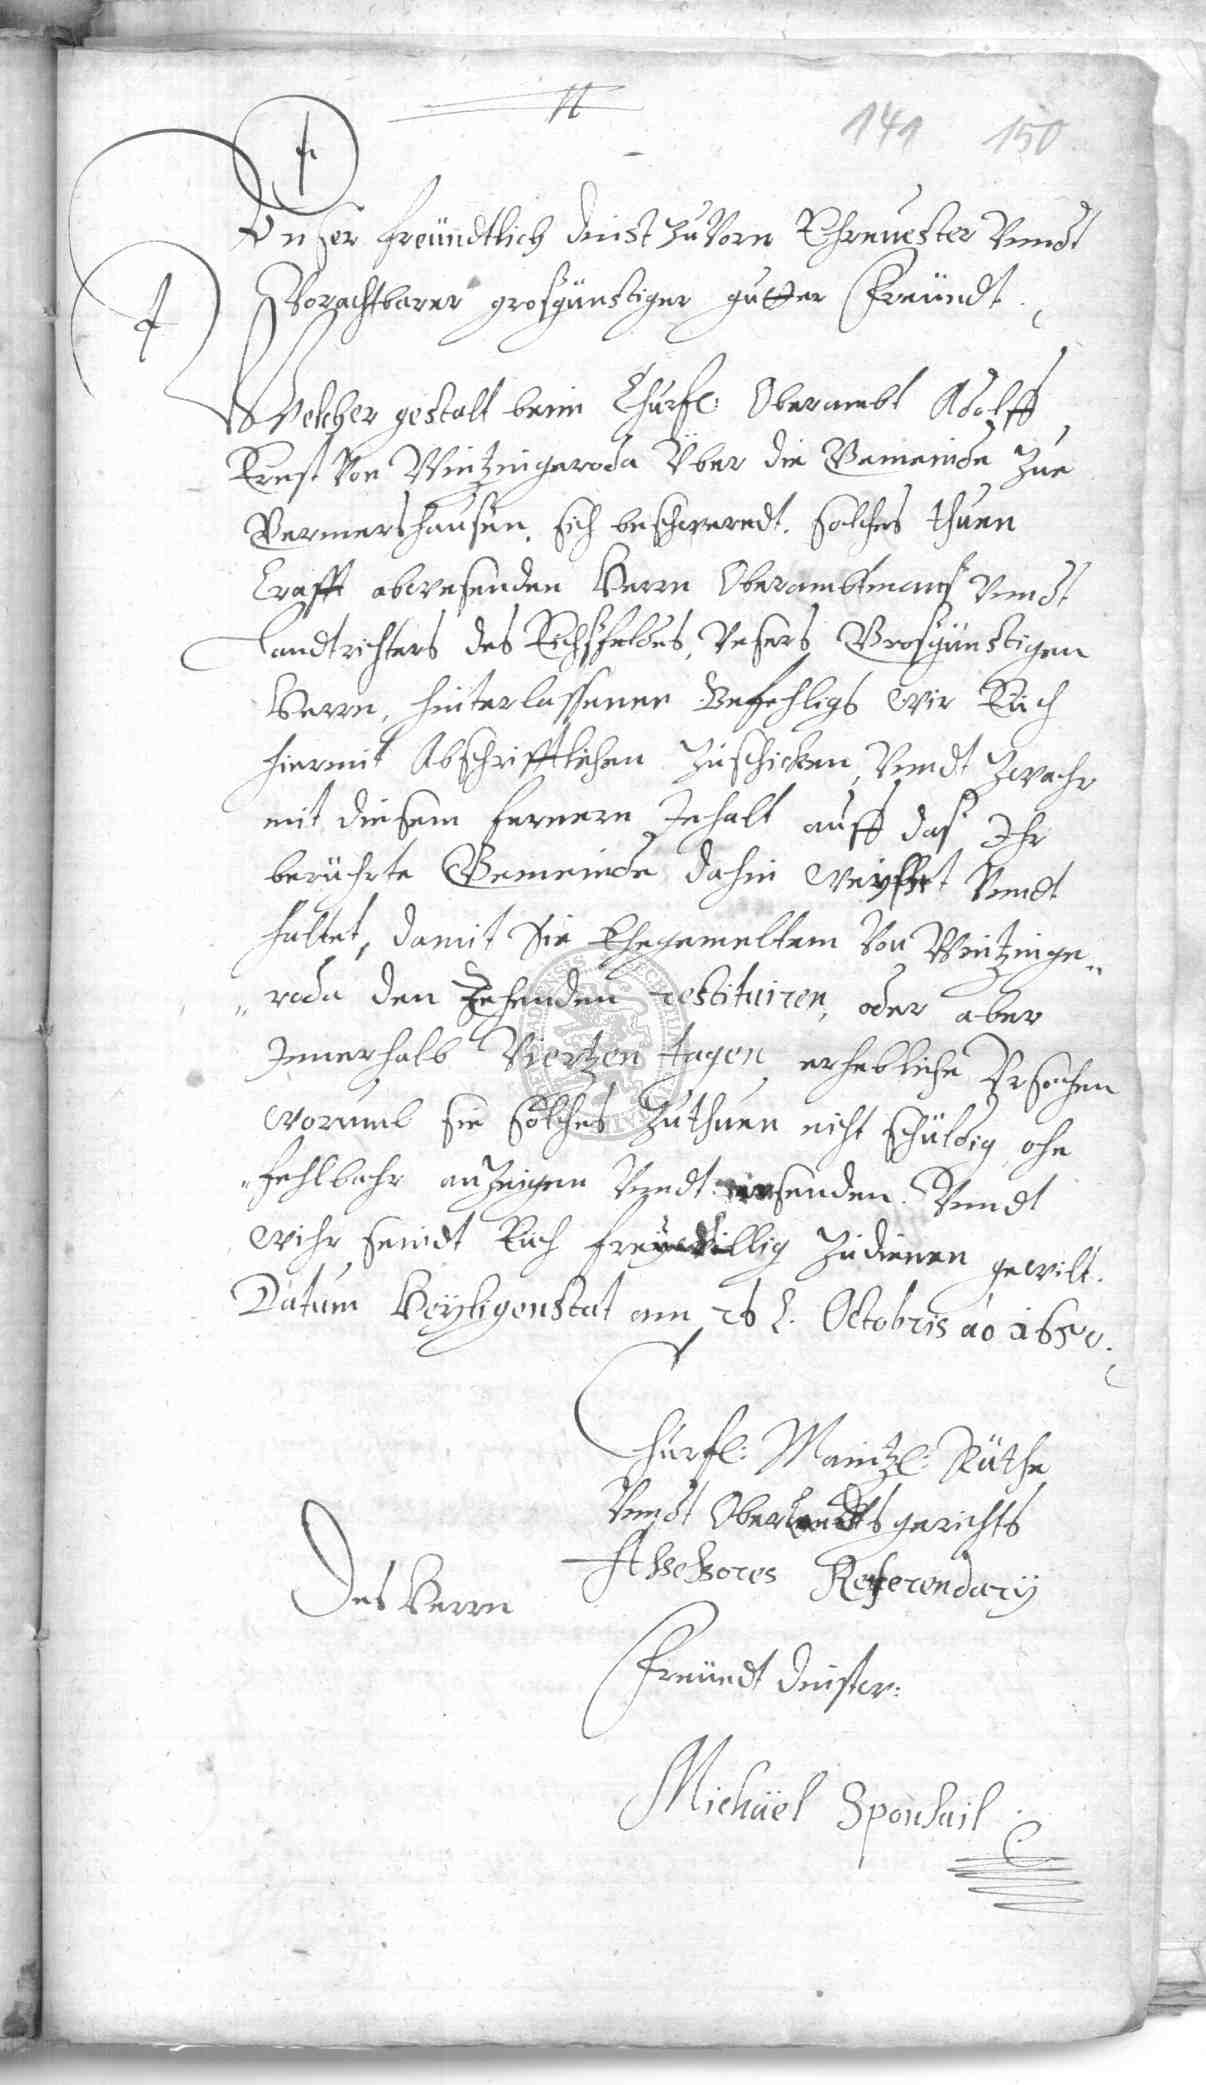 H
141 150
Unser freündtlich dinst zuvorn Ehrnuester Vundt
Vorachtbarer grosgünstiger gutter Freündt.
Welcher gestalt beim Churfl: Oberambt Adolff
Ernst Von Wintzingeroda Über die Gemeinde Zue
Germershausen, sich beschweredt. solches thuen
Crafft abwesenden Herrn Oberambtmans Vundt
Landtrichters des Eichsfeldes, Unsers Grosgünstigen
Herrn, hinterlassenen Befehligs wir Euch
hiermit Abschrifftlichen Zuschicken, Vundt Zwahr
mit diesem fernern Inhalt auff das Ihr
berührte Gemeinde dahin weyset Vundt
haltet, damit Sie Ehegemeltem Von Wintzinge„
„roda den Zehenden restituiren, oder aber
Innerhalb Viertzen tagen erhebliche Ursachen
worumb sie solches Zuthuen nicht schüldig, ohn
„fehlbahr anzeigen Vundt einsenden. Vundt
wihr seindt Euch freywillig Zudienen gewilt.
Datum Heyligenstat am 26 t. Octobris ao 1650.
Churfl: Maintzl: Räthe
Vundt Oberlandtsgerichts
Assessores Referendarÿ
Des Herrn
Freundt dinster:
Michäel Sponsail